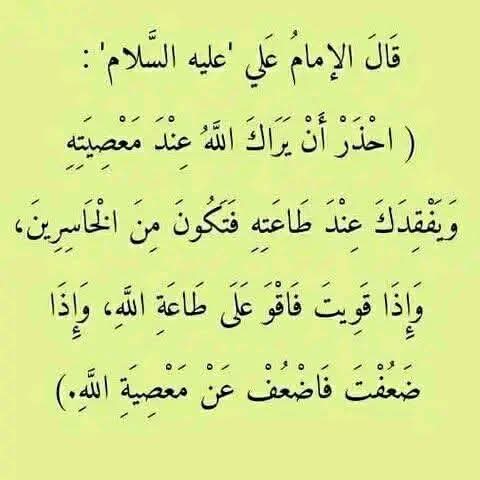 قَالَ الإمامُ عَلي 'عليه السَّلام' :
( احْذَرْ أَنْ يَرَاكَ اللَّهُ عِنْدَ مَعْصِيَتِهِ
وَيَفْقِدَكَ عِنْدَ طَاعَتِهِ فَتَكُونَ مِنَ الْخَاسِرِينَ،
وَإِذَا قَوِيتَ فَاقْوَ عَلَى طَاعَةِ اللَّهِ، وَإِذَا
ضَعُفْتَ فَاضْعُفْ عَنْ مَعْصِيَةِ اللَّهِ.)